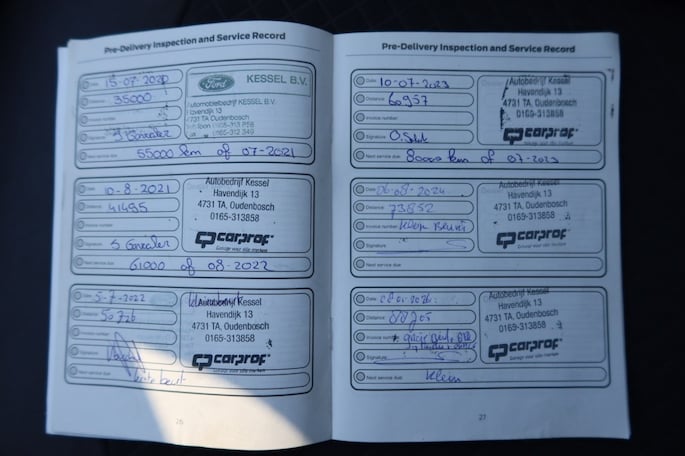 Pre-Delivery Inspection and Service Record
Date: 15-07-2020
Distance: 35000
Invoice number
Signature
Next service due: 55000 km of 07-2021
Ford KESSEL B.V.
Automobielbedrijf KESSEL B.V.
Havendijk 13
4731 TA Oudenbosch
Date: 10-8-2021
Distance: 41495
Invoice number
Signature
Next service due: 61000 of 08-2022
Autobedrijf Kessel
Havendijk 13
4731 TA, Oudenbosch
0165-313858
carprof
Garage voor alle merken
Date: 5-7-2022
Distance: 50726
Invoice number
Signature
Next service due: beurt
Autobedrijf Kessel
Havendijk 13
4731 TA, Oudenbosch
0165-313858
carprof
Garage voor alle merken
26
Pre-Delivery Inspection and Service Record
Date: 10-07-2023
Distance: 60957
Invoice number
Signature
Next service due: 80000 km of 07-2023
Autobedrijf Kessel
Havendijk 13
4731 TA, Oudenbosch
0165-313858
carprof
Garage voor alle merken
Date: 06-08-2024
Distance: 73852
Invoice number
Signature
Next service due:
Autobedrijf Kessel
Havendijk 13
4731 TA, Oudenbosch
0165-313858
carprof
Garage voor alle merken
Date:
Distance:
Invoice number
Signature
Next service due: Klein
Autobedrijf Kessel
Havendijk 13
4731 TA, Oudenbosch
0165-313858
carprof
Garage voor alle merken
27